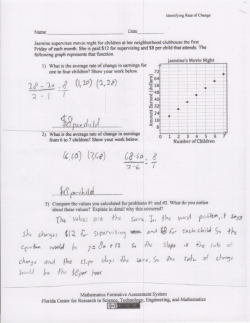 Identifying Rate of Change
Name Date
Jasmine supervises movie night for children at her neighborhood clubhouse the first
Friday of each month. She is paid $12 for supervising and $8 per child that attends. The
following graph represents that function.
1) What is the average rate of change in earnings for
one to four children? Show your work below.
Jasmine's Movie Night
Amount Earned (dollars)
72
64
56
48
40
32
24
16
8
0 1 2 3 4 5 6 7
Number of Children
28-20 = 8
2-1 1
(1,20) (2,28)
$8 per child
2) What is the average rate of change in earnings
from 6 to 7 children? Show your work below.
(6,60) (7,68) 68-60 = 8
7-6 1
$8 per child
3) Compare the values you calculated for problems #1 and #2. What do you notice
about these values? Explain in detail why this occurred?
The values are the same. In the word problem, it says
she charges $12 for supervising and $8 for each child So the
equation would be y = 8x + 12 So the slope is the rate of
change and the slope stays the same. So the rate of change
would be the $8 per
Mathematics Formative Assessment System
Florida Center for Research in Science, Technology, Engineering, and Mathematics